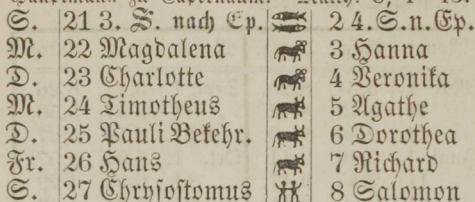 S. 21 3. S. nach Ep. 2 4. S. n. Ep.
M. 22 Magdalena 3 Hanna
D. 23 Charlotte 4 Veronika
M. 24 Timotheus 5 Agathe
D. 25 Pauli Bekehr. 6 Dorothea
Fr. 26 Hans 7 Richard
S. 27 Chrysostomus 8 Salomon